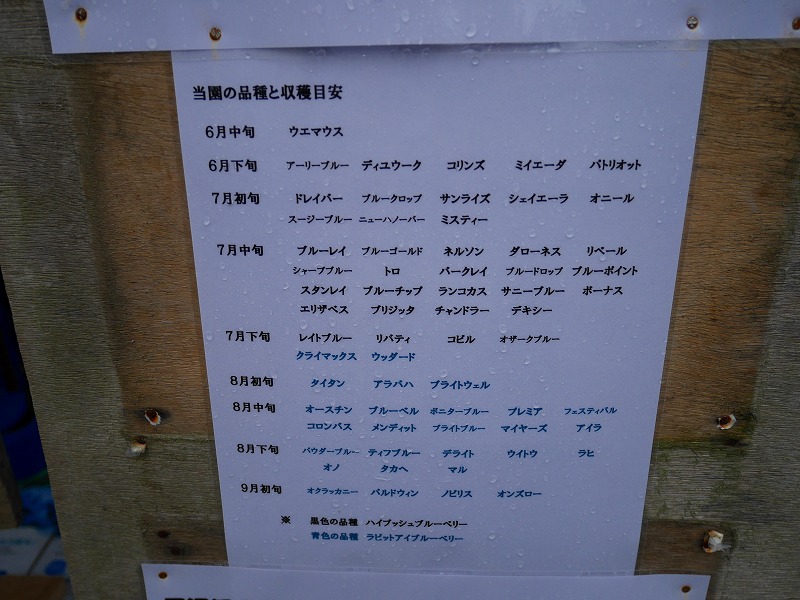 当園の品種と収穫目安
6月中旬 ウエマウス
6月下旬 アーリーブルー ディユウーク コリンズ ミイエーダ パトリオット
7月初旬 ドレイバー ブルークロップ サンライズ シェイエーラ オニール
スージーブルー ニューハノーバー ミスティー
7月中旬 ブルーレイ ブルーゴールド ネルソン ダローネス リベール
シャープブルー トロ バークレイ ブルードロップ ブルーポイント
スタンレイ ブルーチップ ランコカス サニーブルー ボーナス
エリザベス ブリジッタ チャンドラー デキシー
7月下旬 レイトブルー リバティ コビル オザークブルー
クライマックス ウッダード
8月初旬 タイタン アラバハ ブライトウェル
8月中旬 オースチン ブルーベル ボニターブルー プレミア フェスティバル
コロンバス メンディット ブライトブルー マイヤーズ アイラ
8月下旬 パウダーブルー ティフブルー デライト ウイトウ ラヒ
オノ タカヘ マル
9月初旬 オクラッカニー バルドウィン ノビリス オンズロー
※ 黒色の品種 ハイブッシュブルーベリー
青色の品種 ラビットアイブルーベリー